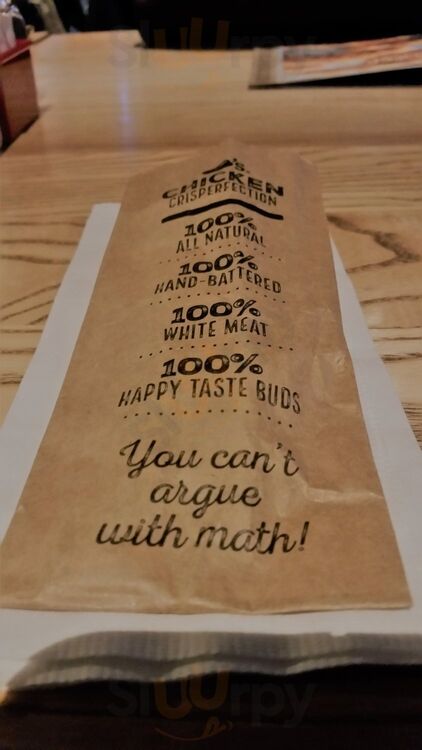 A's.
CHICKEN
CRISPERFECTION
100%
ALL NATURAL
100%
HAND-BATTERED
100%
WHITE MEAT
100%
HAPPY TASTE BUDS
You can't
argue
with math!
slurpy